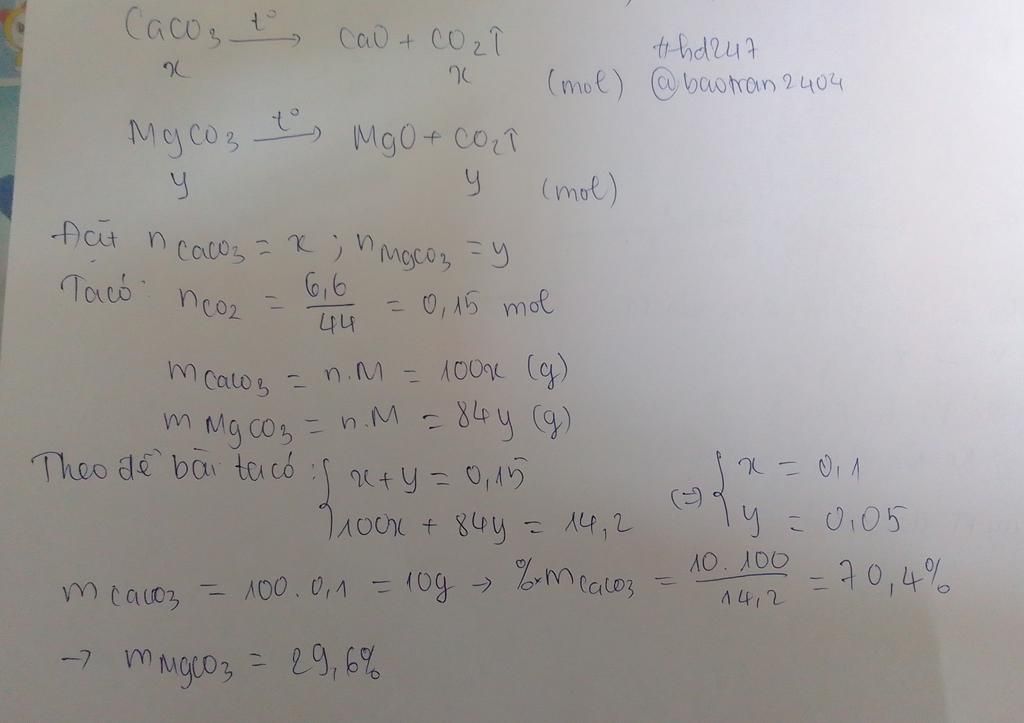 CaCO3 t° → CaO + CO2↑
x x (mol)
#hd247
@baotran2404
MgCO3 t° → MgO + CO2↑
y y (mol)
Đặt nCaCO3 = x ; nMgCO3 = y
Ta có: nCO2 = 6,6/44 = 0,15 mol
mCaCO3 = n.M = 100x (g)
mMgCO3 = n.M = 84y (g)
Theo đề bài ta có: { x + y = 0,15 (=) { x = 0,1
100x + 84y = 14,2 y = 0,05
mCaCO3 = 100.0,1 = 10g → %mCaCO3 = 10.100/14,2 = 70,4%
→ mMgCO3 = 29,6%